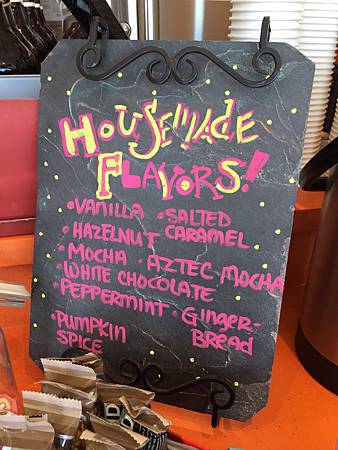 HOUSEMADE
FLAVORS!
•VANILLA •SALTED
•HAZELNUT CARAMEL
•MOCHA •AZTEC MOCHA
•WHITE CHOCOLATE
•PEPPERMINT •GINGER-
•PUMPKIN BREAD
SPICE